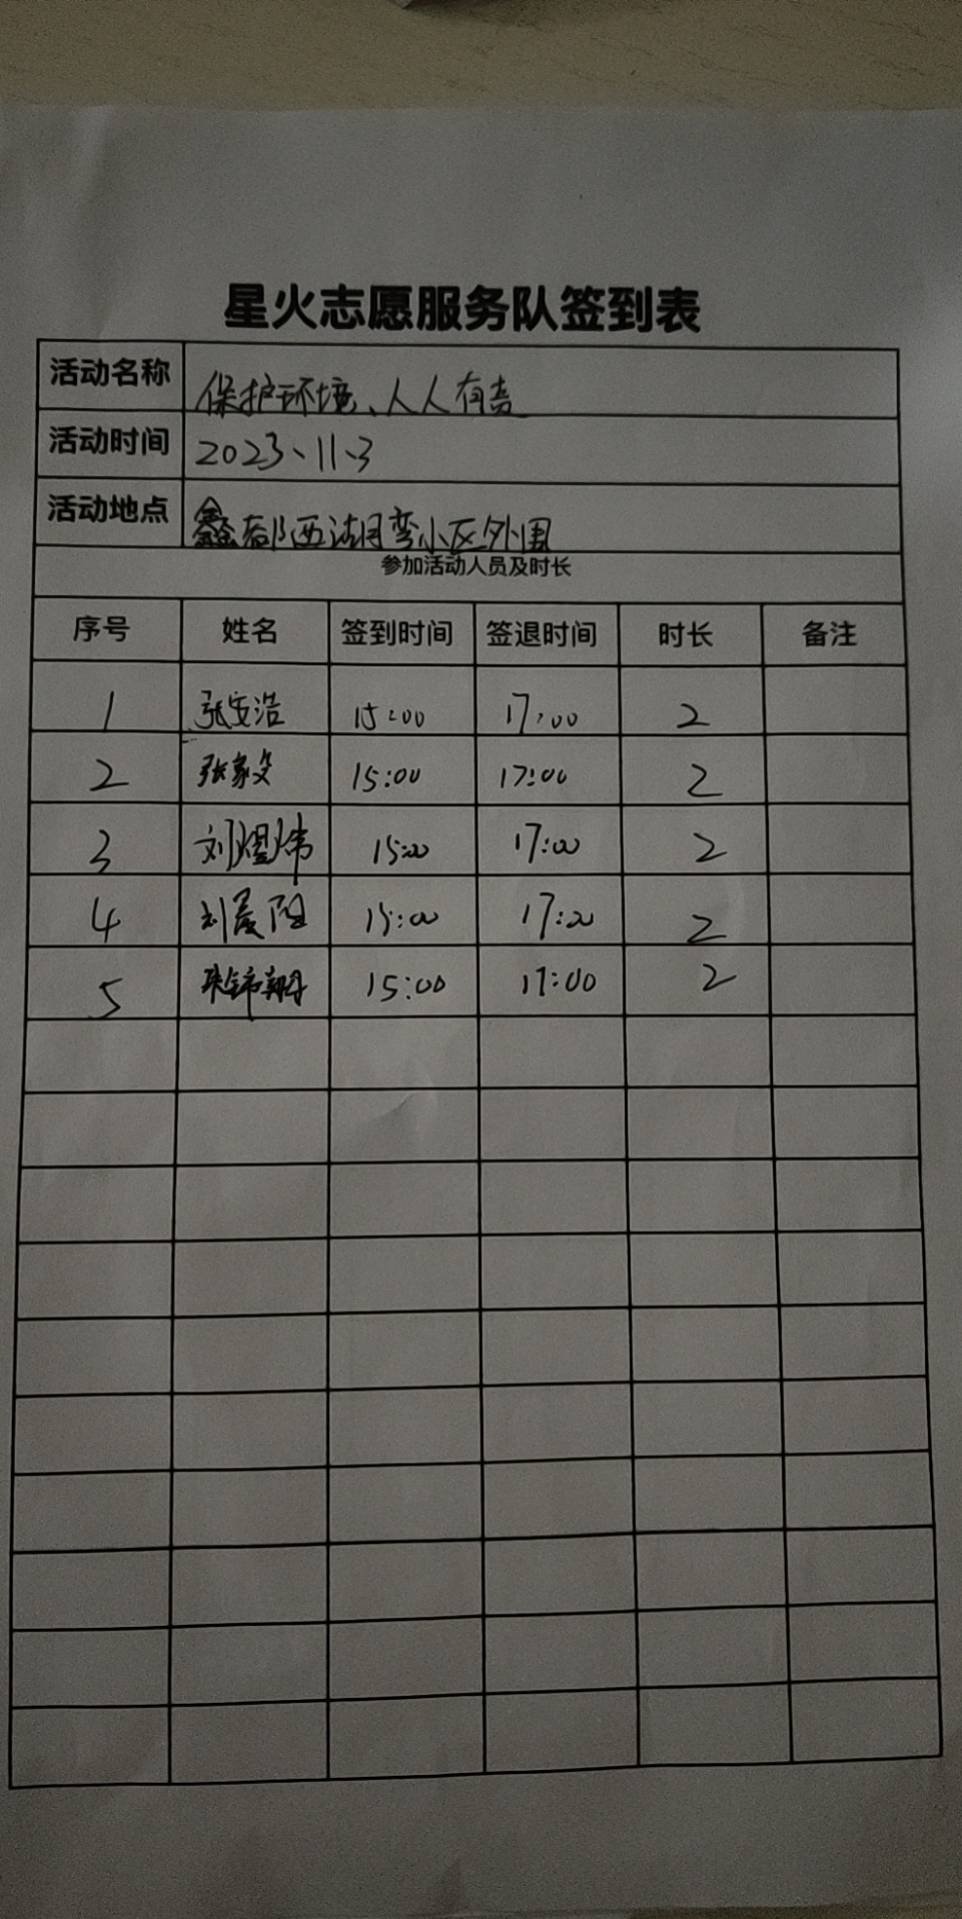 星火志愿服务队签到表
活动名称 保护环境、人人有责
活动时间 2023、11、3
活动地点 鑫都西湖湾小区外围
参加活动人员及时长
序号 姓名 签到时间 签退时间 时长 备注
1 张安浩 15:00 17:00 2
2 张家 15:00 17:00 2
3 刘煜炜 15:00 17:00 2
4 刘晨阳 15:00 17:00 2
5 15:00 17:00 2